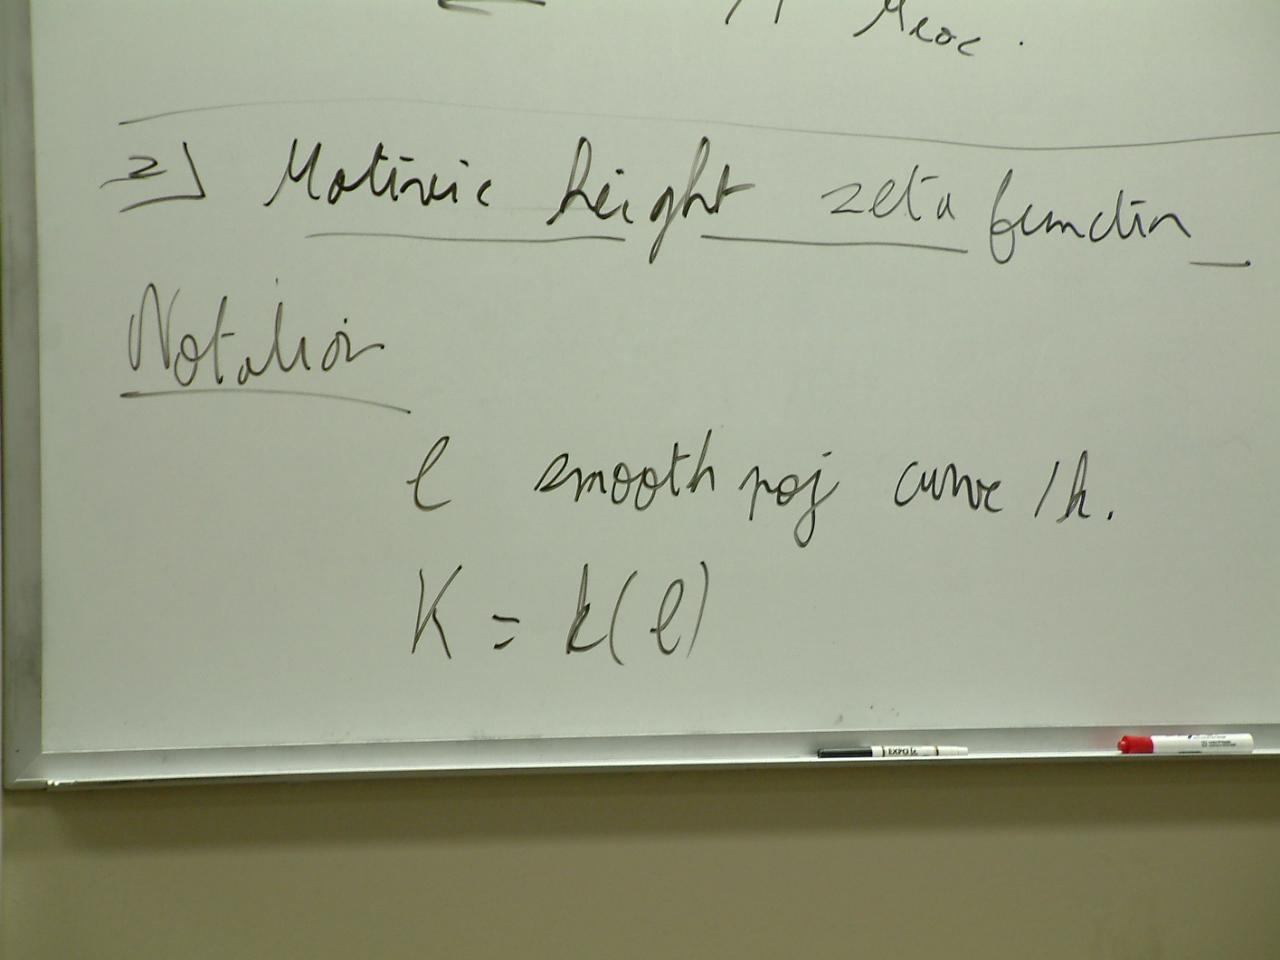 2) Motivic height zeta function
Notation
C smooth proj curve /k.
K = k(C)
EXPO